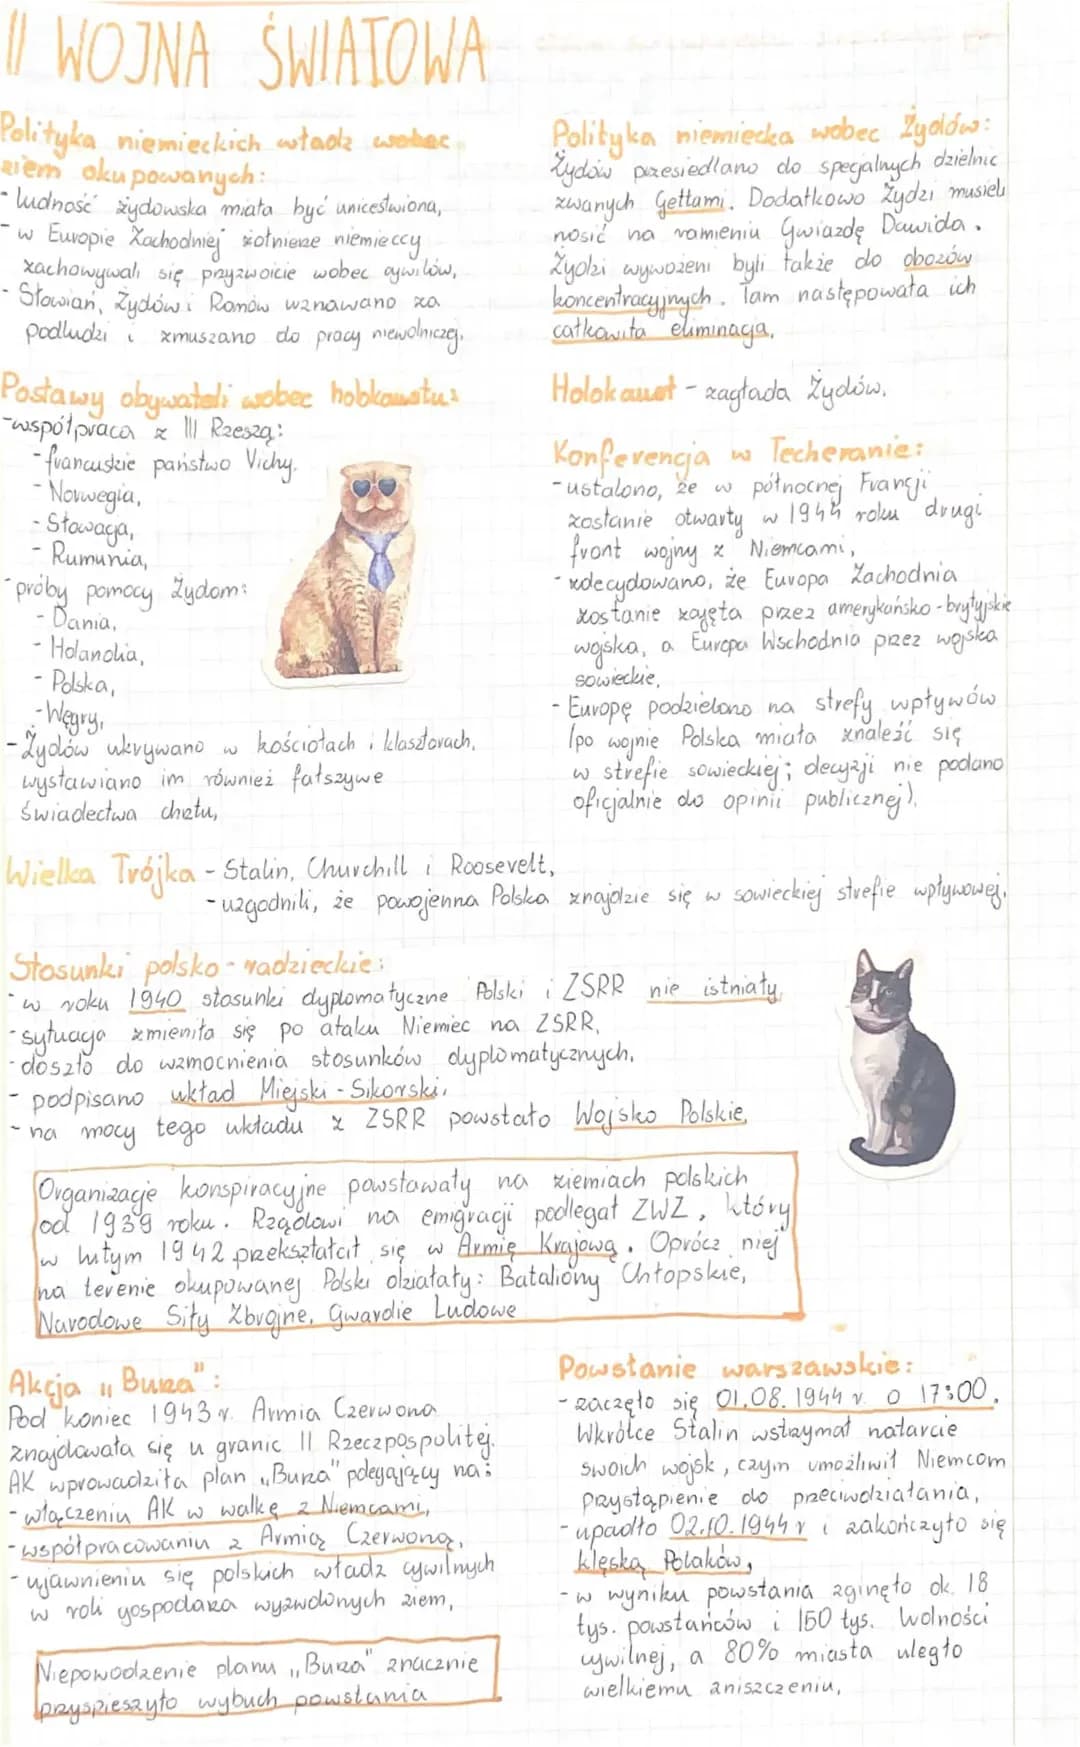 II WOJNA ŚWIATOWA
Polityka niemieckich władz wobec
ziem okupowanych:
- ludność żydowska miała być unicestwiona,
- w Europie Zachodniej żołnierze niemieccy
zachowywali się przyzwoicie wobec cywilów,
- Słowian, Żydów i Romów uznawano za
podludzi i zmuszano do pracy niewolniczej.
Postawy obywateli wobec holokaustu:
- współpraca z III Rzeszą:
- francuskie państwo Vichy,
- Norwegia,
- Słowacja,
- Rumunia,
- próby pomocy Żydom:
- Dania,
- Holandia,
- Polska,
- Węgry,
- Żydów ukrywano w kościołach i klasztorach,
wystawiano im również fałszywe
świadectwa chrztu,
Polityka niemiecka wobec Żydów:
Żydów przesiedlano do specjalnych dzielnic
zwanych Gettami. Dodatkowo Żydzi musieli
nosić na ramieniu Gwiazdę Dawida.
Żydzi wywożeni byli także do obozów
koncentracyjnych. Tam następowała ich
całkowita eliminacja.
Holokaust - zagłada Żydów.
Konferencja w Techeranie:
- ustalono, że w północnej Francji
zostanie otwarty w 1944 roku drugi
front wojny z Niemcami,
- zdecydowano, że Europa Zachodnia
zostanie zajęta przez amerykańsko-brytyjskie
wojska, a Europa Wschodnia przez wojska
sowieckie,
- Europę podzielono na strefy wpływów
(po wojnie Polska miała znaleźć się
w strefie sowieckiej; decyzji nie podano
oficjalnie do opinii publicznej).
Wielka Trójka - Stalin, Churchill i Roosevelt,
- uzgodnili, że powojenna Polska znajdzie się w sowieckiej strefie wpływowej.
Stosunki polsko-radzieckie:
- w roku 1940 stosunki dyplomatyczne Polski i ZSRR nie istniały,
- sytuacja zmieniła się po ataku Niemiec na ZSRR,
- doszło do wzmocnienia stosunków dyplomatycznych,
- podpisano układ Miejski-Sikorski,
- na mocy tego układu z ZSRR powstało Wojsko Polskie,
Organizacje konspiracyjne powstawały na ziemiach polskich
od 1939 roku. Rządowi na emigracji podlegał ZWZ, który
w lutym 1942 przekształcił się w Armię Krajową. Oprócz niej
na terenie okupowanej Polski działały: Bataliony Chłopskie,
Narodowe Siły Zbrojne, Gwardie Ludowe
Akcja "Burza":
Pod koniec 1943 r. Armia Czerwona
znajdowała się u granic II Rzeczpospolitej.
AK wprowadziła plan "Burza" polegający na:
- włączeniu AK w walkę z Niemcami,
- współpracowaniu z Armią Czerwoną,
- ujawnieniu się polskich władz cywilnych
w roli gospodarza wyzwolonych ziem,
Niepowodzenie planu "Burza" znacznie
przyspieszyło wybuch powstania
Powstanie warszawskie:
- zaczęło się 01.08.1944 r. o 17:00.
Wkrótce Stalin wstrzymał natarcie
swoich wojsk, czym umożliwił Niemcom
przystąpienie do przeciwdziałania,
- upadło 02.10.1944 r i zakończyło się
klęską Polaków,
- w wyniku powstania zginęło ok. 18
tys. powstańców i 150 tys. wolności
cywilnej, a 80% miasta uległo
wielkiemu zniszczeniu,